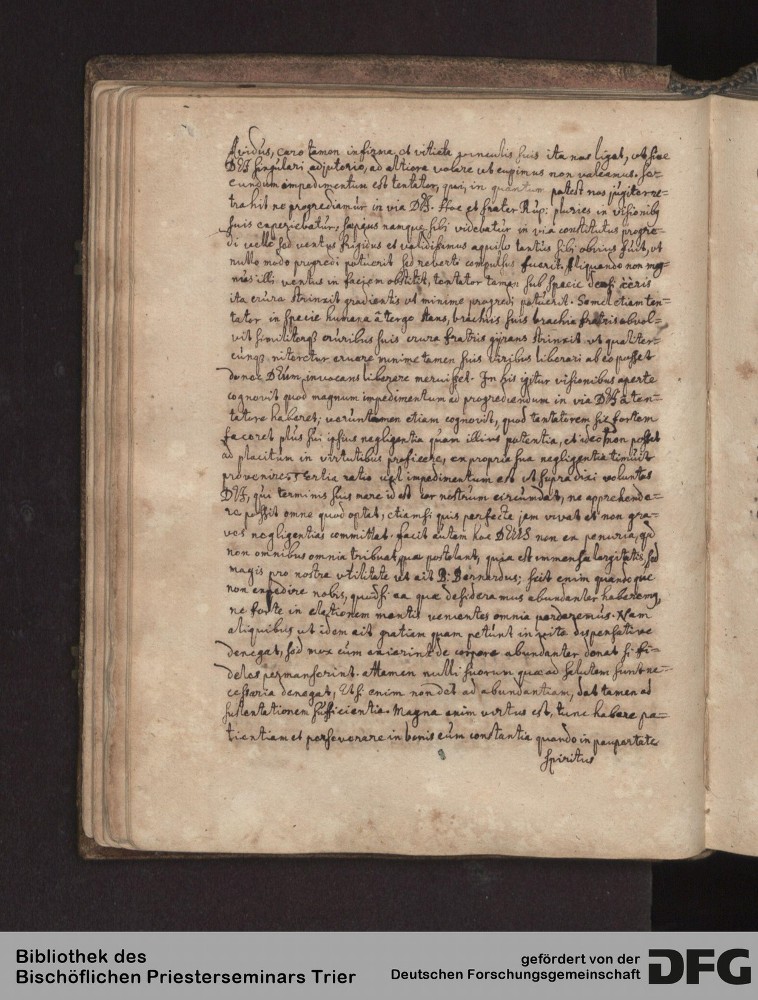 Avidus, caro tamen infirma, et vitiata geniculis suis ita nos ligat, ut sine
DEI singulari adjutorio, ad altiora volare ut cupimus non valeamus. Se=
cundum impedimentum est tentator, qui, in quantum potest nos jugiter re=
trahit ne progrediamur in via DEI. Hoc et frater Rup: pluries in visionibq
suis experiebatur, saepius namque sibi videbatur in via constitutus progre=
di velle sed ventus frigidus et validissimus aquilo tantus sibi obvius fuit, ut
nullo modo progredi potuerit sed reverti compulsus fuerit. Aliquando non mag=
nus illi ventus in faciem obstitit, tentator tamen sub specie
ita crura strinxit gradientis ut minime progredi potuerit. Semel etiam ten=
tator in specie humana â tergo stans, brachiis suis brachia fratris obvol=
vit similiterq3 cruribus suis crura fratris gyrans strinxit ut qualiter=
cunq3 niteretur eruere minime tamen suis viribus liberari ab eo posset
donec DEUM invocans liberare meruisset. In his igitur visionibus aperte
cognovit quod magnum impedimentum ad progrediendum in via DEI â ten=
tatore haberet; veruntamen etiam cognovit, quod tentatorem sic fortem
faceret plus sui ipsius negligentia quam illius potentia, et ideo non posset
ad placitum in virtutibus proficere, ex propria sua negligentia timuit
provenire. Tertia ratio vel impedimentum est ut supra dixi voluntas
DEI, qui terminis suis mare id est cor nostrum circumdat, ne apprehende=
re possit omne quod optat, etiamsi quis perfecte jam vivat et non gra=
ves negligentias committat. facit autem hoc DEUS non ex penuria, qd
non omnibus omnia tribuat quae postulant, quia est immensa largitatis, sed
magis pro nostra utilitate ut ait B: Bernardus; scit enim quandoque
non expedire nobis, quodsi ea quae desideramus abundanter haberemq,
ne forte in elationem mentis venientes omnia perderemus. Nam
aliquibus ut idem ait gratiam quam petunt in vita dispensative
denegat, sed mox cum exierint de corpore abundanter donat si fi=
deles permanserint. Attamen nulli suorum quae ad salutem sunt ne=
cessaria denegat, Etsi enim non det ad abundantiam, dat tamen ad
sustentationem sufficientia. Magna enim virtus est, tunc habere pa=
tientiam et perseverare in bonis cum constantia quando in paupertate
spiritus
Bibliothek des
Bischöflichen Priesterseminars Trier
gefördert von der
Deutschen Forschungsgemeinschaft
DFG